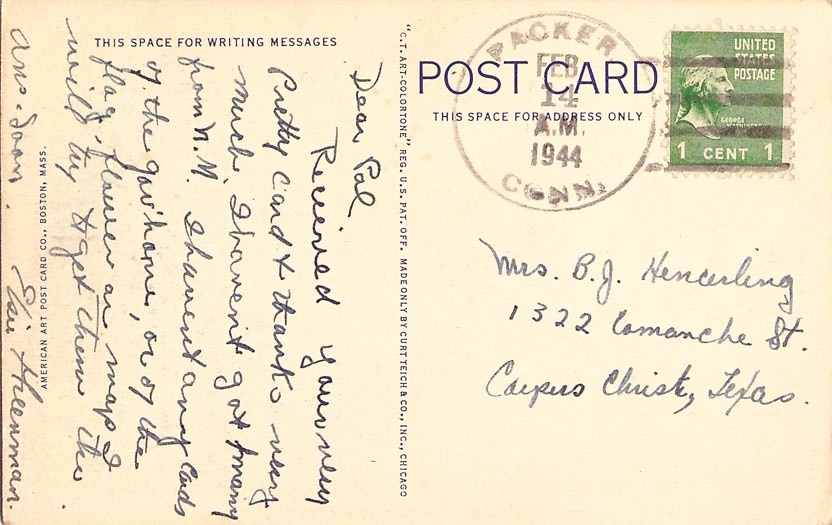 THIS SPACE FOR WRITING MESSAGES
Dear Pal
Received your very
Pretty Card & thanks very
much. I havent got many
from N.M. I havent any cards
of the gov's home, or of the
flag, flower or map. I
will try & get them
Ans. Soon.
AMERICAN ART POST CARD CO., BOSTON, MASS.
"C.T. ART-COLORTONE" REG. U.S. PAT. OFF. MADE ONLY BY CURT TEICH & CO., INC., CHICAGO
POST CARD
THIS SPACE FOR ADDRESS ONLY
PACKER
FEB
14
A.M.
1944
CONN.
UNITED
STATES
POSTAGE
GEORGE
WASHINGTON
1 CENT 1
Mrs. B. J. Hencerling
1322 Comanche St.
Corpus Christi, Texas.